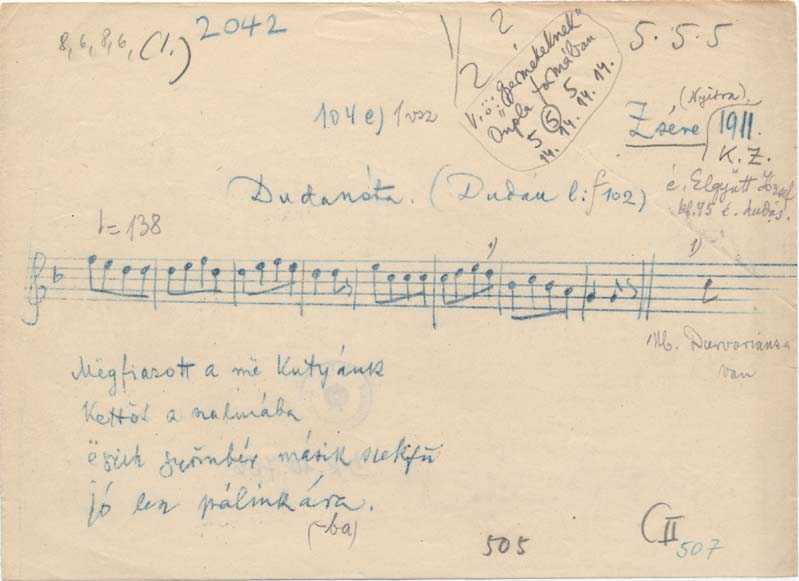 8, 6, 8, 6, (1.) 2042
1/2 2
V.ö: "gyermekeknek"
Dupla formában
5 (5) 5
14. 14. 14. 14.
5. 5. 5
104 e) 1 vsz
(Nyitra)
Zsére 1911.
K. Z.
é. Elgyütt József
kb. 45 é. dudás.
Dudanóta. (Dudán l: f 102)
= 138
1) 1)
Mb. Durvariánsa
van
Mëgfiazott a më Kutyánk
Kettőt a szalmába
ëgyik gyömbér másik szekfű
jó lesz pálinkára.
(-ba)
505
C II
507